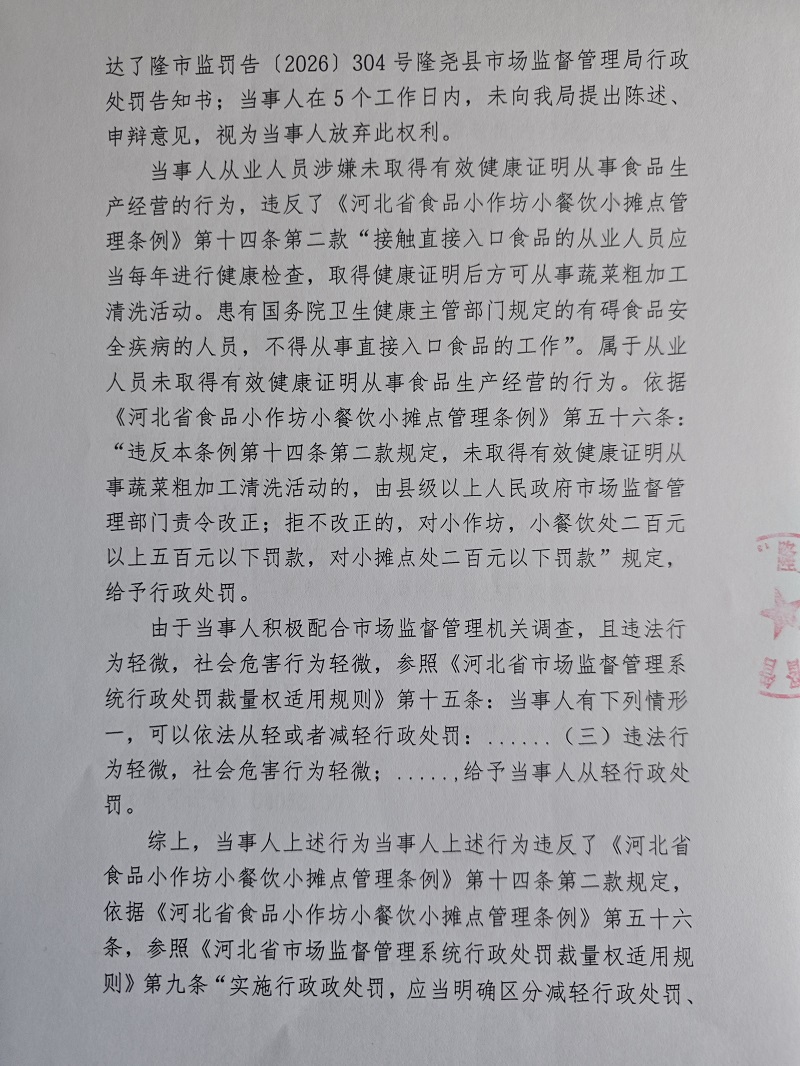 达了隆市监罚告〔2026〕304号隆尧县市场监督管理局行政
处罚告知书；当事人在5个工作日内，未向我局提出陈述、
申辩意见，视为当事人放弃此权利。
当事人从业人员涉嫌未取得有效健康证明从事食品生
产经营的行为，违反了《河北省食品小作坊小餐饮小摊点管
理条例》第十四条第二款“接触直接入口食品的从业人员应
当每年进行健康检查，取得健康证明后方可从事蔬菜粗加工
清洗活动。患有国务院卫生健康主管部门规定的有碍食品安
全疾病的人员，不得从事直接入口食品的工作”。属于从业
人员未取得有效健康证明从事食品生产经营的行为。依据
《河北省食品小作坊小餐饮小摊点管理条例》第五十六条：
“违反本条例第十四条第二款规定，未取得有效健康证明从
事蔬菜粗加工清洗活动的，由县级以上人民政府市场监督管
理部门责令改正；拒不改正的，对小作坊，小餐饮处二百元
以上五百元以下罚款，对小摊点处二百元以下罚款”规定，
给予行政处罚。
由于当事人积极配合市场监督管理机关调查，且违法行
为轻微，社会危害行为轻微，参照《河北省市场监督管理系
统行政处罚裁量权适用规则》第十五条：当事人有下列情形
一，可以依法从轻或者减轻行政处罚：......（三）违法行
为轻微，社会危害行为轻微；.....,给予当事人从轻行政处
罚。
综上，当事人上述行为当事人上述行为违反了《河北省
食品小作坊小餐饮小摊点管理条例》第十四条第二款规定，
依据《河北省食品小作坊小餐饮小摊点管理条例》第五十六
条，参照《河北省市场监督管理系统行政处罚裁量权适用规
则》第九条“实施行政政处罚，应当明确区分减轻行政处罚、
隆